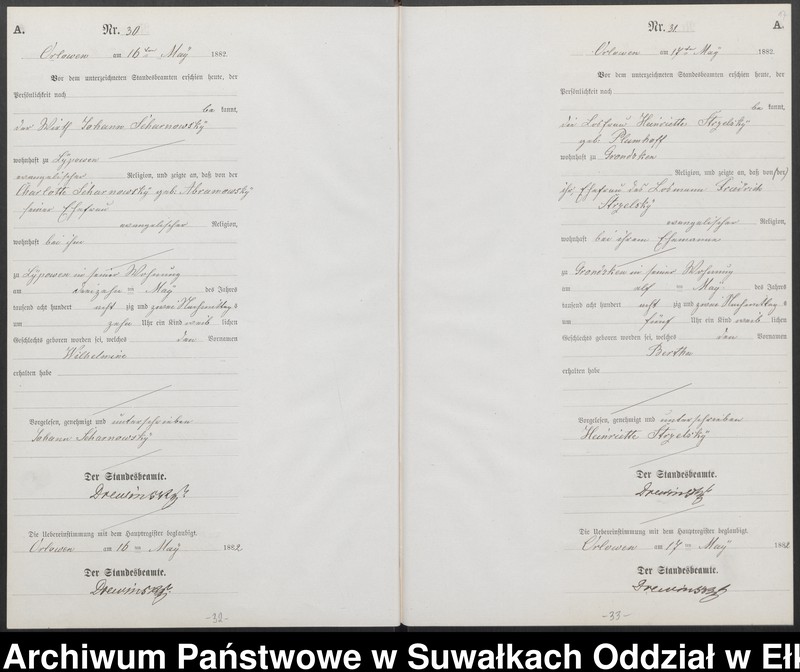 A. Nr. 30
Orlowen am 16ten May 1882
Vor dem unterzeichneten Standesbeamten erschien heute, der
Persönlichkeit nach
be kannt,
der Wirth Johann Scharnowsky
wohnhaft zu Lÿpowen
evangelischer Religion, und zeigte an, daß von der
Charlotte Scharnowsky geb. Abramowsky
seiner Ehefrau
evangelischer Religion,
wohnhaft bei ihm
zu Lÿpowen in seiner Wohnung
am dreizehn ten May des Jahres
tausend acht hundert acht zig und zwei Nachmittag s
um zehn Uhr ein Kind weib lichen
Geschlechts geboren worden sei, welches den Vornamen
Wilhelmine
erhalten habe
Vorgelesen, genehmigt und unterschrieben
Johann Scharnowsky
Der Standesbeamte.
Drewinski
Die Uebereinstimmung mit dem Hauptregister beglaubigt.
Orlowen am 16 ten May 1882
Der Standesbeamte.
Drewinski
-32-
Nr. 31 A.
Orlowen am 17ten May 1882
Vor dem unterzeichneten Standesbeamten erschien heute, der
Persönlichkeit nach
be kannt,
die Losfrau Heinriette Strzelsky
geb. Plumhoff
wohnhaft zu Grondzken
Religion, und zeigte an, daß von (der)
Ehefrau des Losmann Friedrich
Strzelsky
evangelischer Religion,
wohnhaft bei ihrem Ehemanne
zu Grondzken in seiner Wohnung
am elf ten May des Jahres
tausend acht hundert acht zig und zwei Nachmittag s
um fünf Uhr ein Kind weib lichen
Geschlechts geboren worden sei, welches den Vornamen
Bertha
erhalten habe
Vorgelesen, genehmigt und unterschrieben
Heinriette Strzelsky
Der Standesbeamte.
Drewinski
Die Uebereinstimmung mit dem Hauptregister beglaubigt.
Orlowen am 17 ten May 1882
Der Standesbeamte.
Drewinski
-33-
Archiwum Państwowe w Suwałkach Oddział w Eł